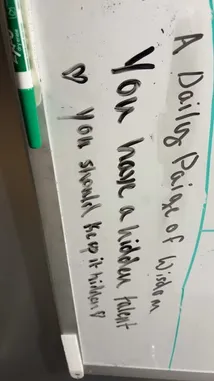 A Daily Paige of Wisdom
You have a hidden talent
♡ You should keep it hidden ♡